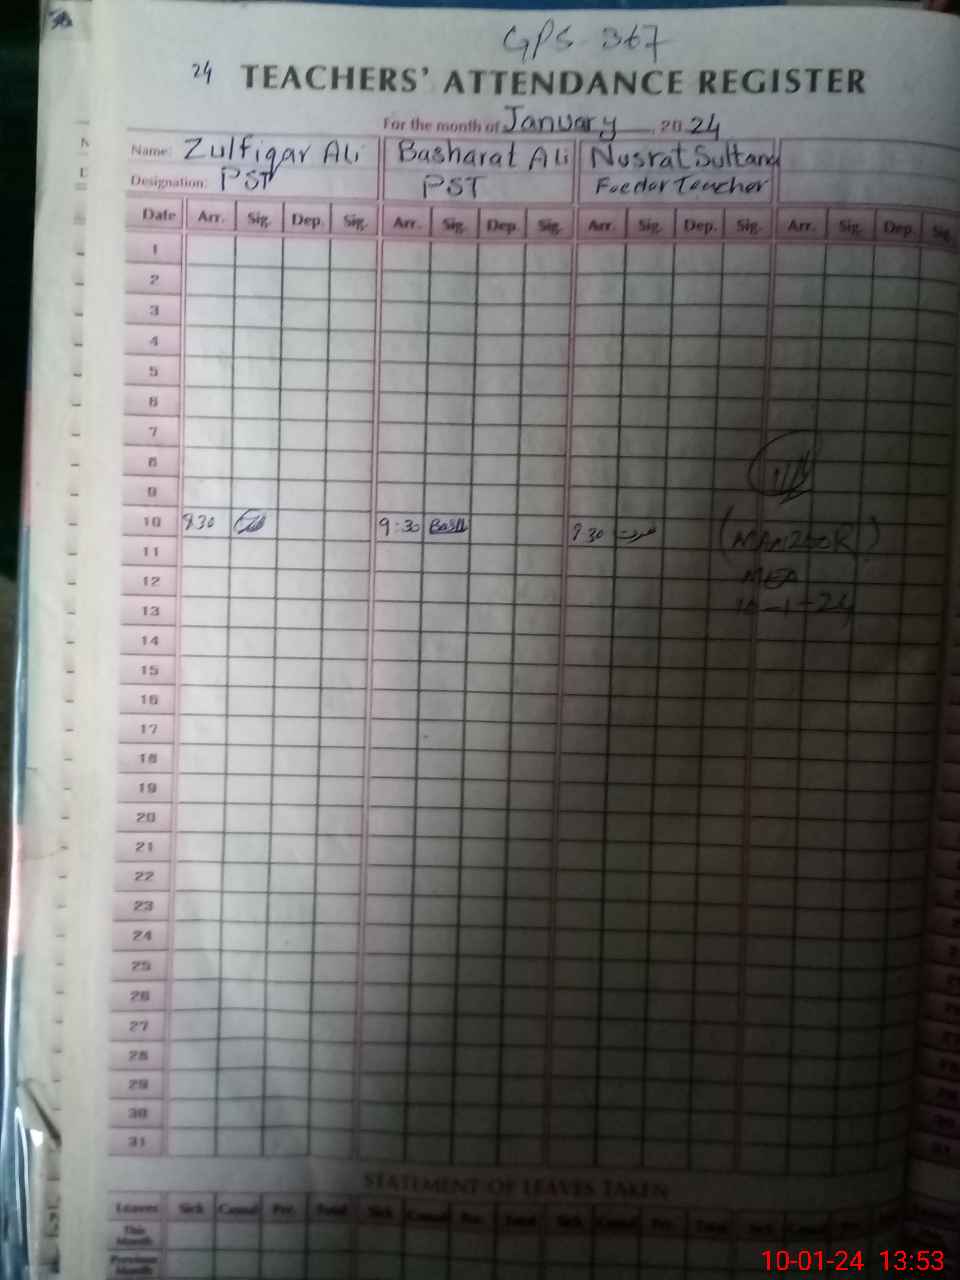 GPS 367
24 TEACHERS' ATTENDANCE REGISTER
For the month of January 2024
Name: Zulfiqar Ali Basharat Ali Nusrat Sultana
Designation: PST PST Feeder Teacher
Date Arr. Sig. Dep. Sig. Arr. Sig. Dep. Sig. Arr. Sig. Dep. Sig. Arr. Sig. Dep. Sig.
1
2
3
4
5
6
7
8
9
10 9:30 9:30 Bash 9 30 نصرت (MANZOOR)
11
12 MEA
13 10-1-24
14
15
16
17
18
19
20
21
22
23
24
25
26
27
28
29
30
31
STATEMENT OF LEAVES TAKEN
Leaves Sick Casual Pri. Total Sick Casual Pri. Total Sick Casual Pri. Total Sick Casual
This Month
Previous Month
10-01-24 13:53